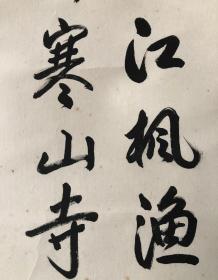 江枫渔
寒山寺